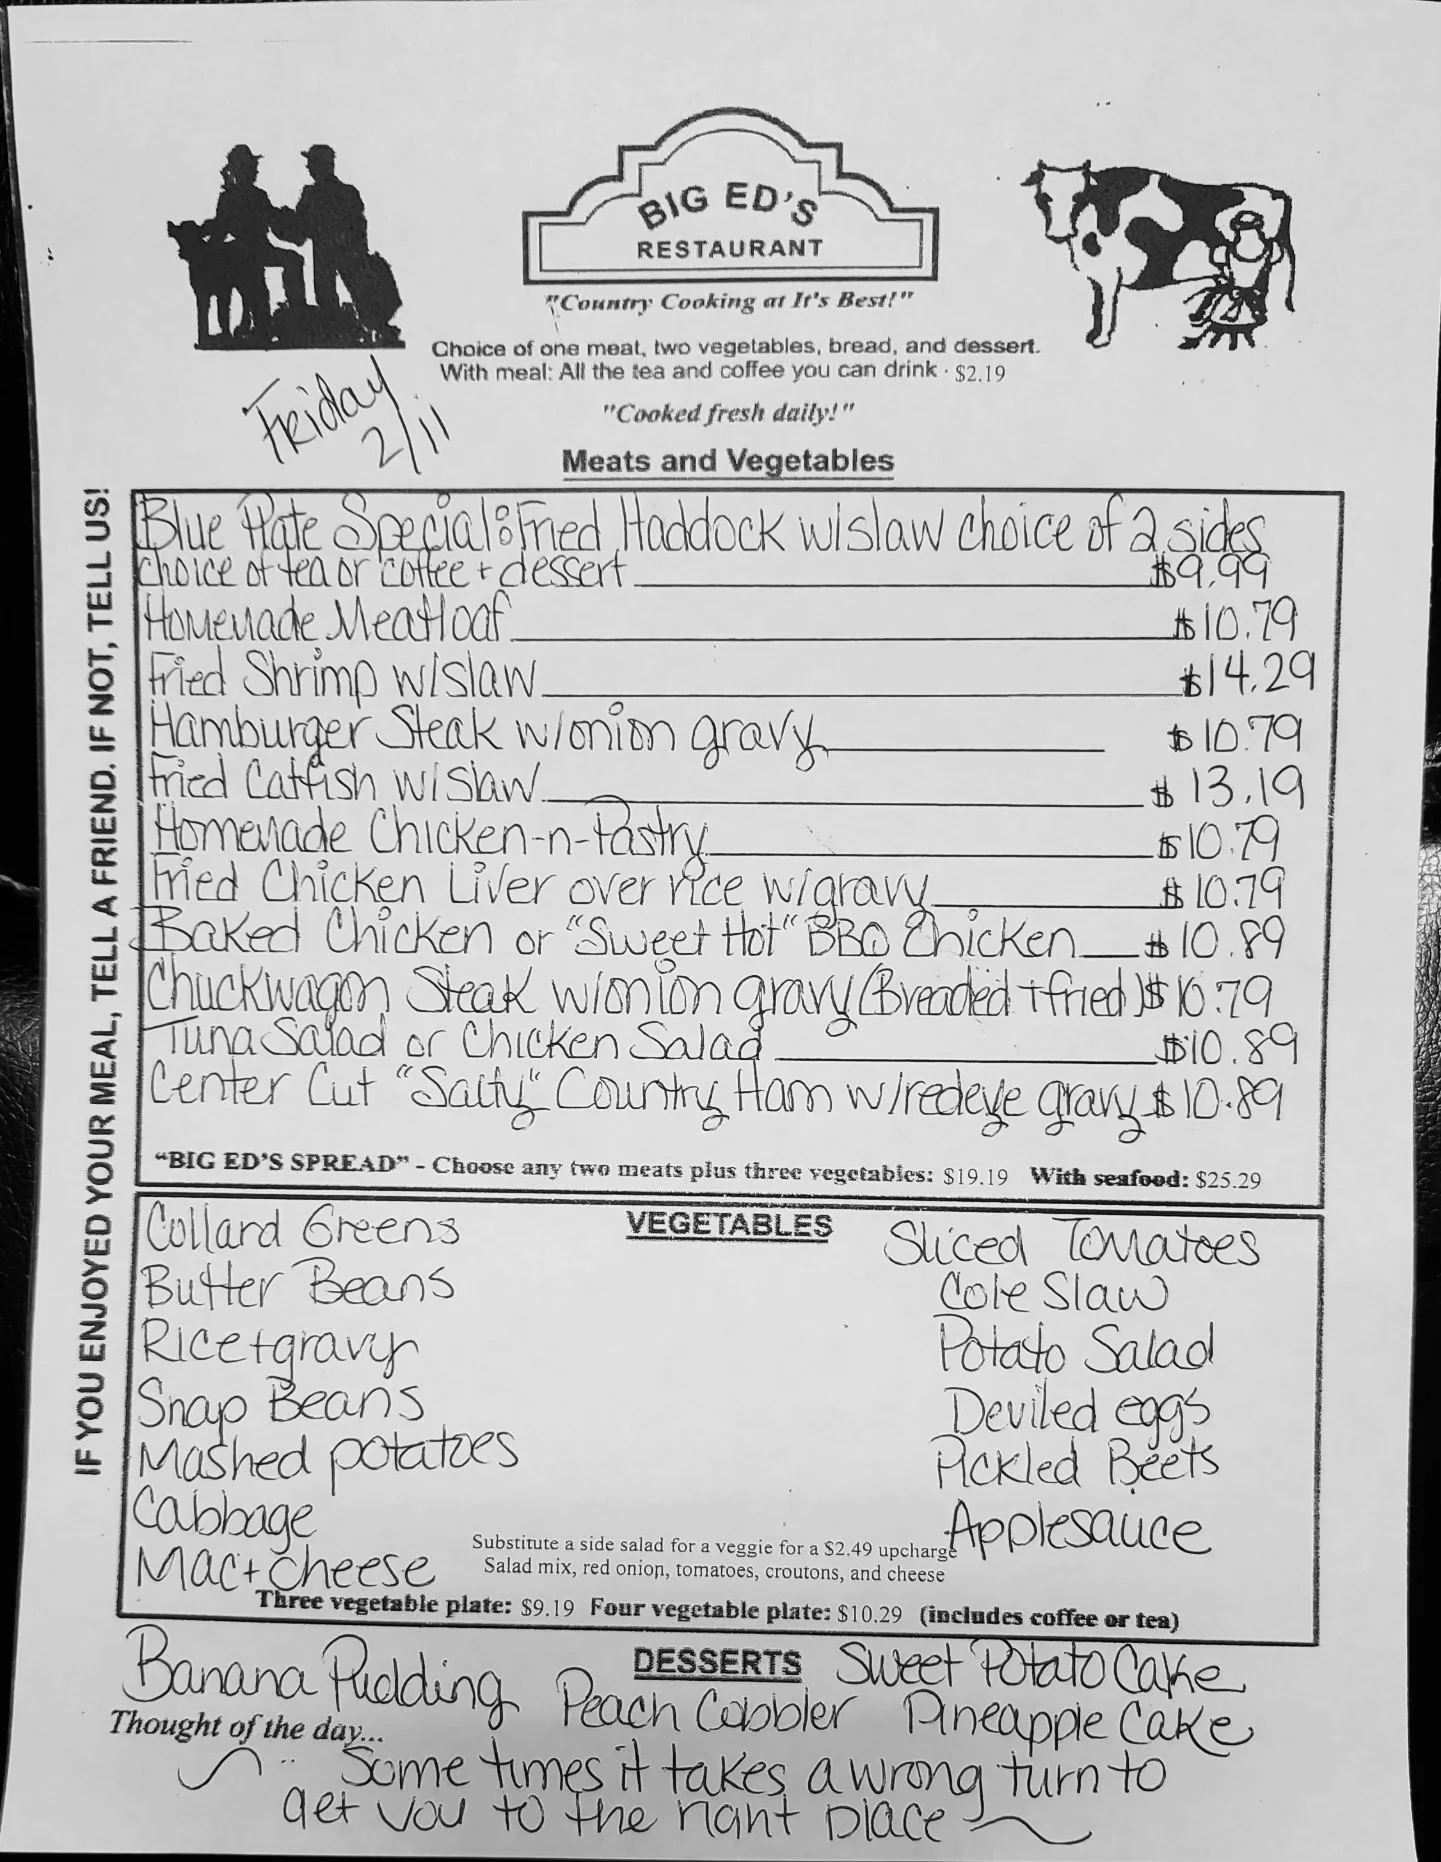 BIG ED'S
RESTAURANT
"Country Cooking at It's Best!"
Choice of one meat, two vegetables, bread, and dessert.
With meal: All the tea and coffee you can drink · $2.19
"Cooked fresh daily!"
Friday
2/11
Meats and Vegetables
IF YOU ENJOYED YOUR MEAL, TELL A FRIEND. IF NOT, TELL US!
Blue Plate Special: Fried Haddock w/slaw choice of 2 sides
choice of tea or coffee + dessert $9.99
Homemade Meatloaf $10.79
Fried Shrimp w/slaw $14.29
Hamburger Steak w/onion gravy $10.79
Fried Catfish w/slaw $13.19
Homemade Chicken-n-Pastry $10.79
Fried Chicken Liver over rice w/gravy $10.79
Baked Chicken or "Sweet Hot" BBQ Chicken $10.89
Chuckwagon Steak w/onion gravy (Breaded + fried) $10.79
Tuna Salad or Chicken Salad $10.89
Center Cut "Salty" Country Ham w/redeye gravy $10.89
"BIG ED'S SPREAD" - Choose any two meats plus three vegetables: $19.19 With seafood: $25.29
VEGETABLES
Collard Greens
Butter Beans
Rice + gravy
Snap Beans
Mashed potatoes
Cabbage
Mac + cheese
Sliced Tomatoes
Cole Slaw
Potato Salad
Deviled eggs
Pickled Beets
Applesauce
Substitute a side salad for a veggie for a $2.49 upcharge
Salad mix, red onion, tomatoes, croutons, and cheese
Three vegetable plate: $9.19 Four vegetable plate: $10.29 (includes coffee or tea)
DESSERTS
Banana Pudding Peach Cobbler Sweet Potato Cake
Pineapple Cake
Thought of the day...
Some times it takes a wrong turn to
get you to the right place